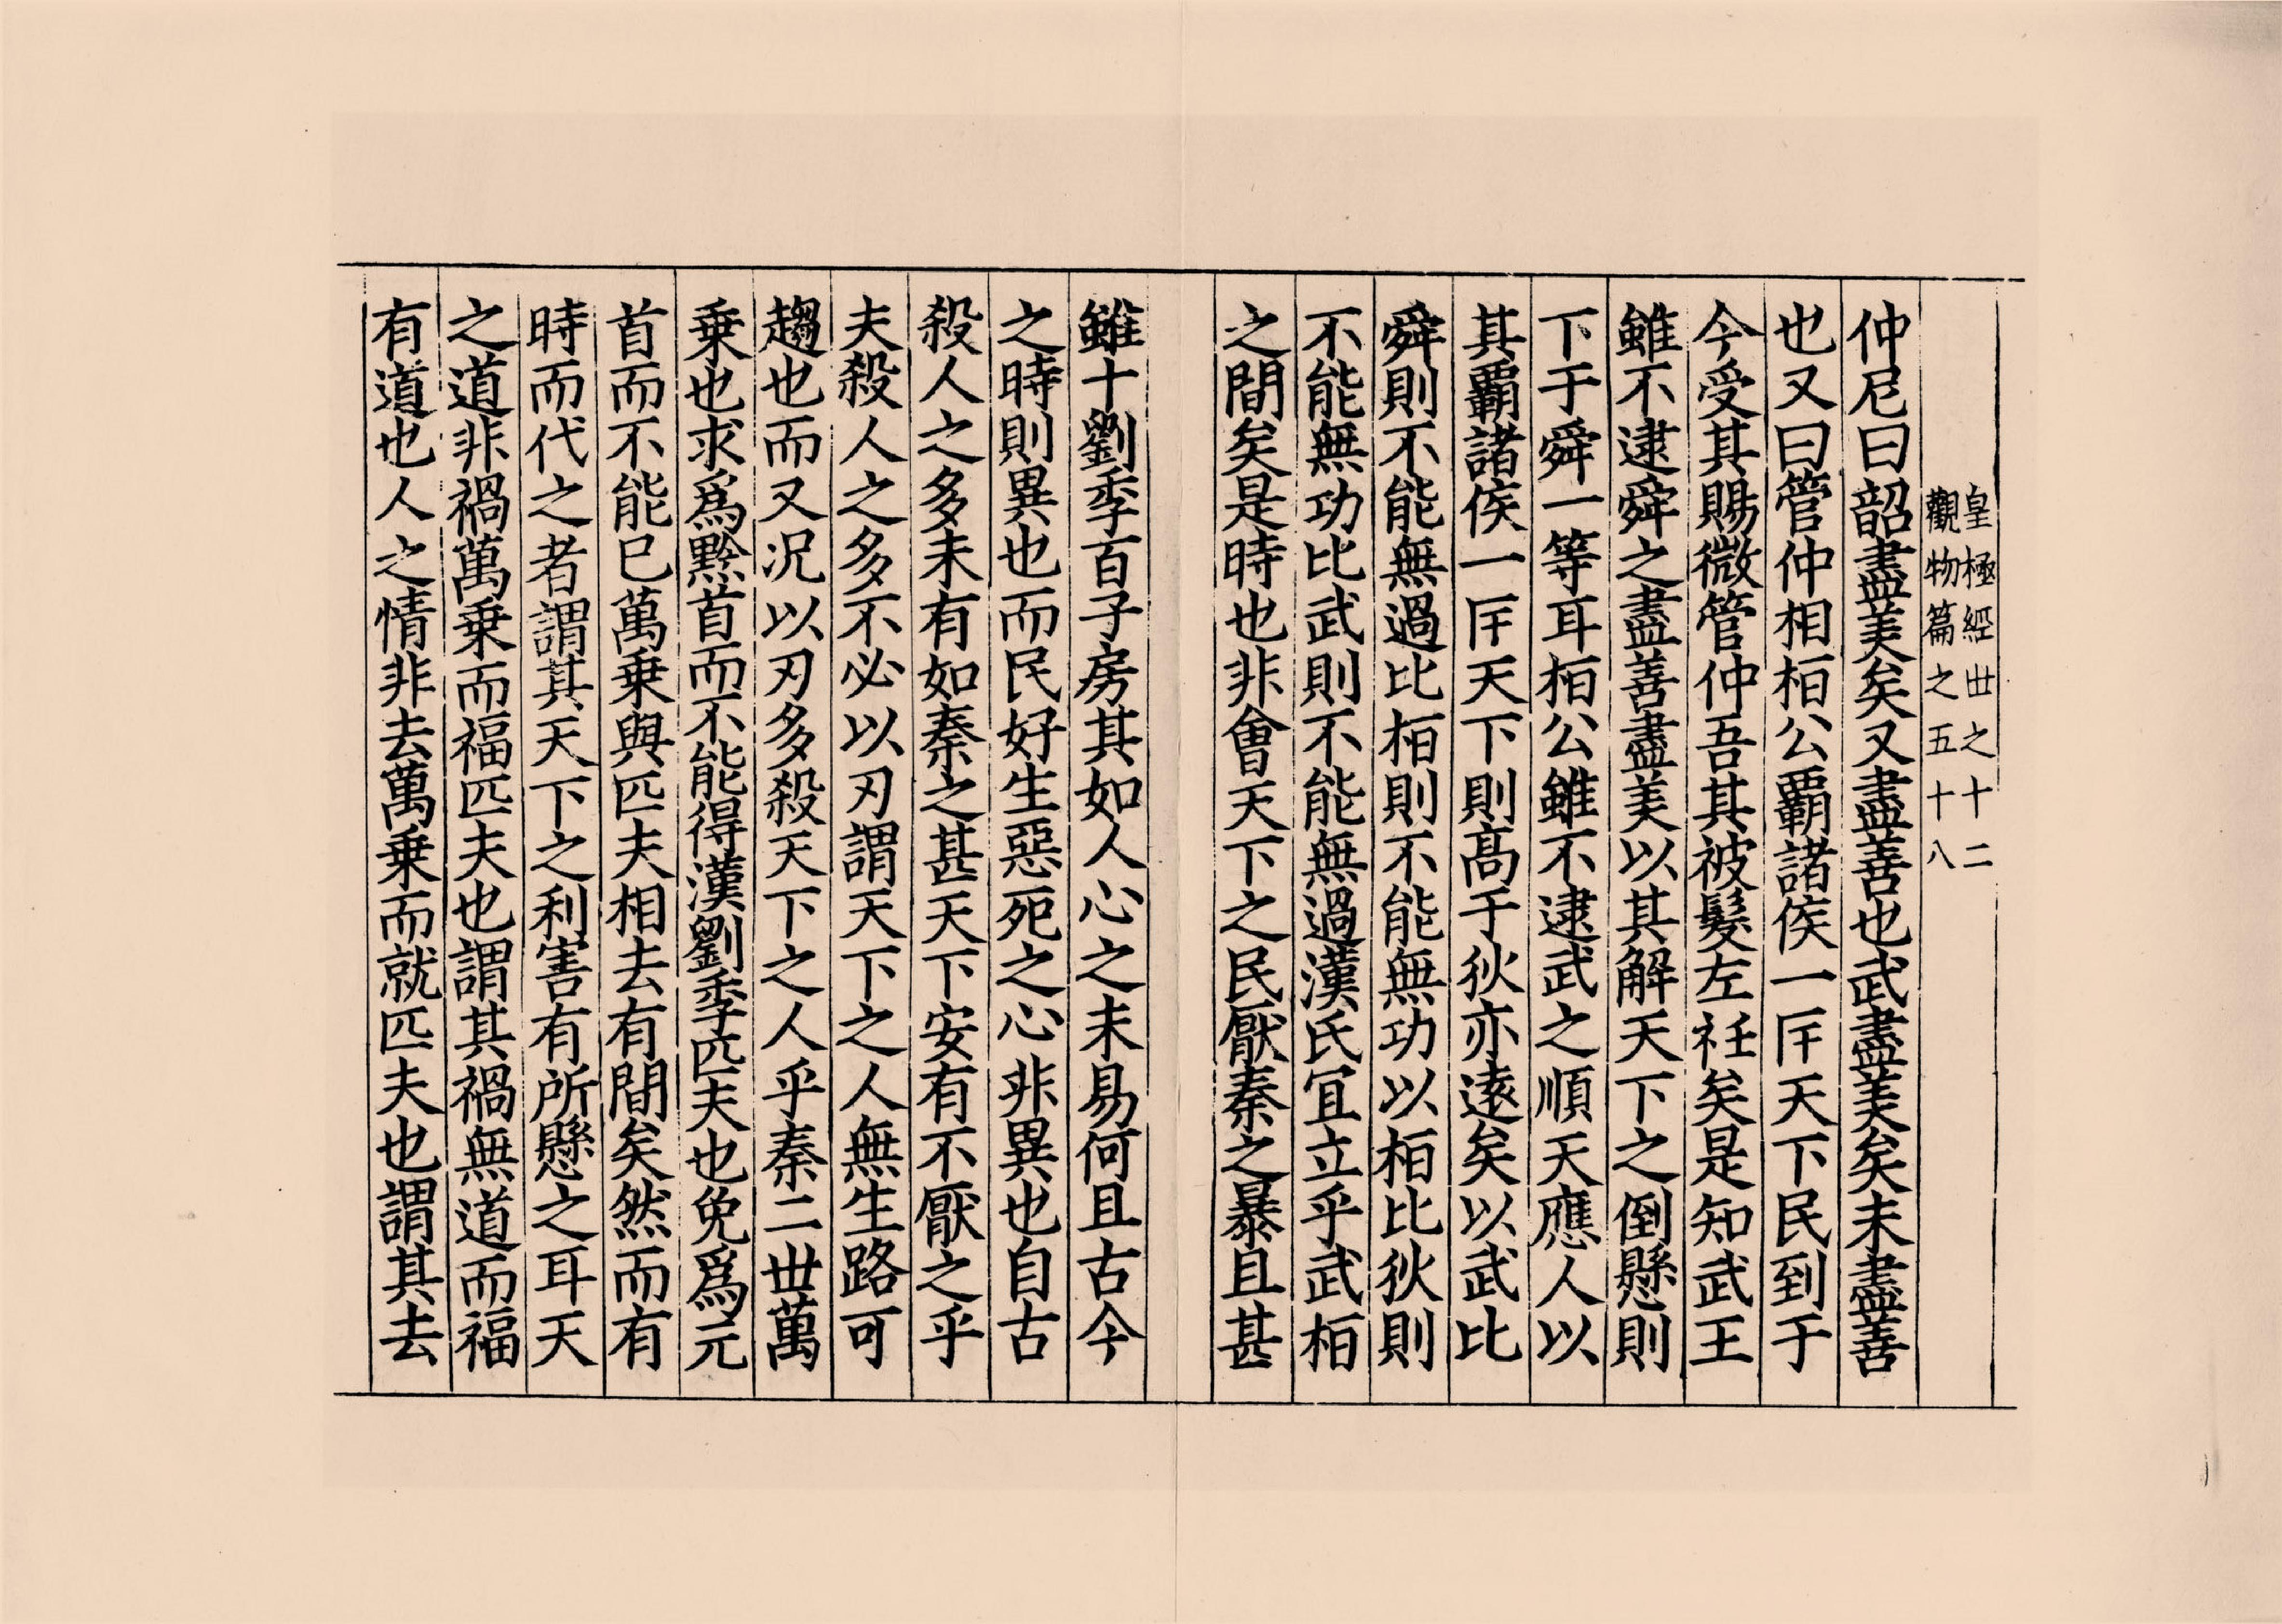 皇極經丗之十二
觀物篇之五十八
仲尼曰韶盡美矣又盡善也武盡美矣未盡善
也又曰管仲相桓公覇諸侯一匡天下民到于
今受其賜微管仲吾其被髮左衽矣是知武王
雖不逮舜之盡善盡美以其解天下之倒懸則
下于舜一等耳桓公雖不逮武之順天應人以
其覇諸侯一匡天下則髙于狄亦逺矣以武比
舜則不能無過比桓則不能無功以桓比狄則
不能無功比武則不能無過漢氏冝立乎武桓
之間矣是時也非會天下之民厭秦之暴且甚
雖十劉季百子房其如人心之未易何且古今
之時則異也而民好生惡死之心非異也自古
殺人之多未有如秦之甚天下安有不厭之乎
夫殺人之多不必以刃謂天下之人無生路可
趨也而又况以刃多殺天下之人乎秦二丗萬
乗也求爲黔首而不能得漢劉季匹夫也免爲元
首而不能已萬乗與匹夫相去有間矣然而有
時而代之者謂其天下之利害有所懸之耳天
之道非禍萬乗而福匹夫也謂其禍無道而福
有道也人之情非去萬乗而就匹夫也謂其去